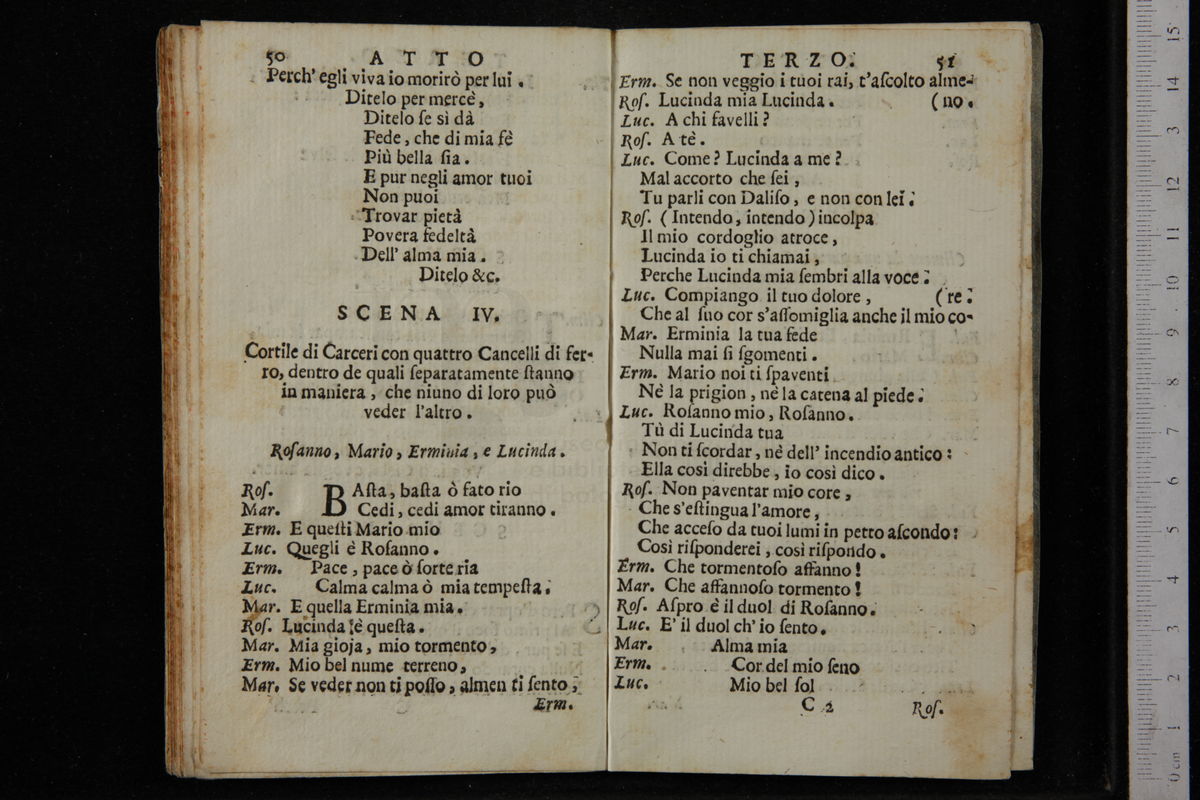 50 ATTO
Perch' egli viva io morirò per lui.
Ditelo per mercè,
Ditelo ſe sì dà
Fede, che di mia fè
Più bella ſia.
E pur negli amor tuoi
Non puoi
Trovar pietà
Povera fedeltà
Dell' alma mia.
Ditelo &c.
SCENA IV.
Cortile di Carceri con quattro Cancelli di fer-
ro, dentro de quali ſeparatamente ſtanno
in maniera, che niuno di loro può
veder l'altro.
Roſanno, Mario, Erminia, e Lucinda.
Roſ. BAſta, baſta ò fato rio
Mar. Cedi, cedi amor tiranno.
Erm. E queſti Mario mio
Luc. Quegli è Roſanno.
Erm. Pace, pace ò ſorte ria
Luc. Calma calma ò mia tempeſta.
Mar. E quella Erminia mia.
Roſ. Lucinda è queſta.
Mar. Mia gioja, mio tormento,
Erm. Mio bel nume terreno,
Mar. Se veder non ti poſſo, almen ti ſento,
Erm.
TERZO. 51
Erm. Se non veggio i tuoi rai, t'aſcolto alme-
Roſ. Lucinda mia Lucinda. (no.
Luc. A chi favelli?
Roſ. A tè.
Luc. Come? Lucinda a me?
Mal accorto che ſei,
Tu parli con Daliſo, e non con lei.
Roſ. (Intendo, intendo) incolpa
Il mio cordoglio atroce,
Lucinda io ti chiamai,
Perche Lucinda mia ſembri alla voce.
Luc. Compiango il tuo dolore, (re.
Che al ſuo cor s'aſſomiglia anche il mio co-
Mar. Erminia la tua fede
Nulla mai ſi ſgomenti.
Erm. Mario noi ti ſpaventi
Nè la prigion, nè la catena al piede.
Luc. Roſanno mio, Roſanno.
Tù di Lucinda tua
Non ti ſcordar, nè dell' incendio antico:
Ella così direbbe, io così dico.
Roſ. Non paventar mio core,
Che s'eſtingua l'amore,
Che acceſo da tuoi lumi in petto aſcondo:
Così riſponderei, così riſpondo.
Erm. Che tormentoſo affanno!
Mar. Che affannoſo tormento!
Roſ. Aſpro è il duol di Roſanno.
Luc. E' il duol ch' io ſento.
Mar. Alma mia
Erm. Cor del mio ſeno
Luc. Mio bel ſol
C 2 Roſ.